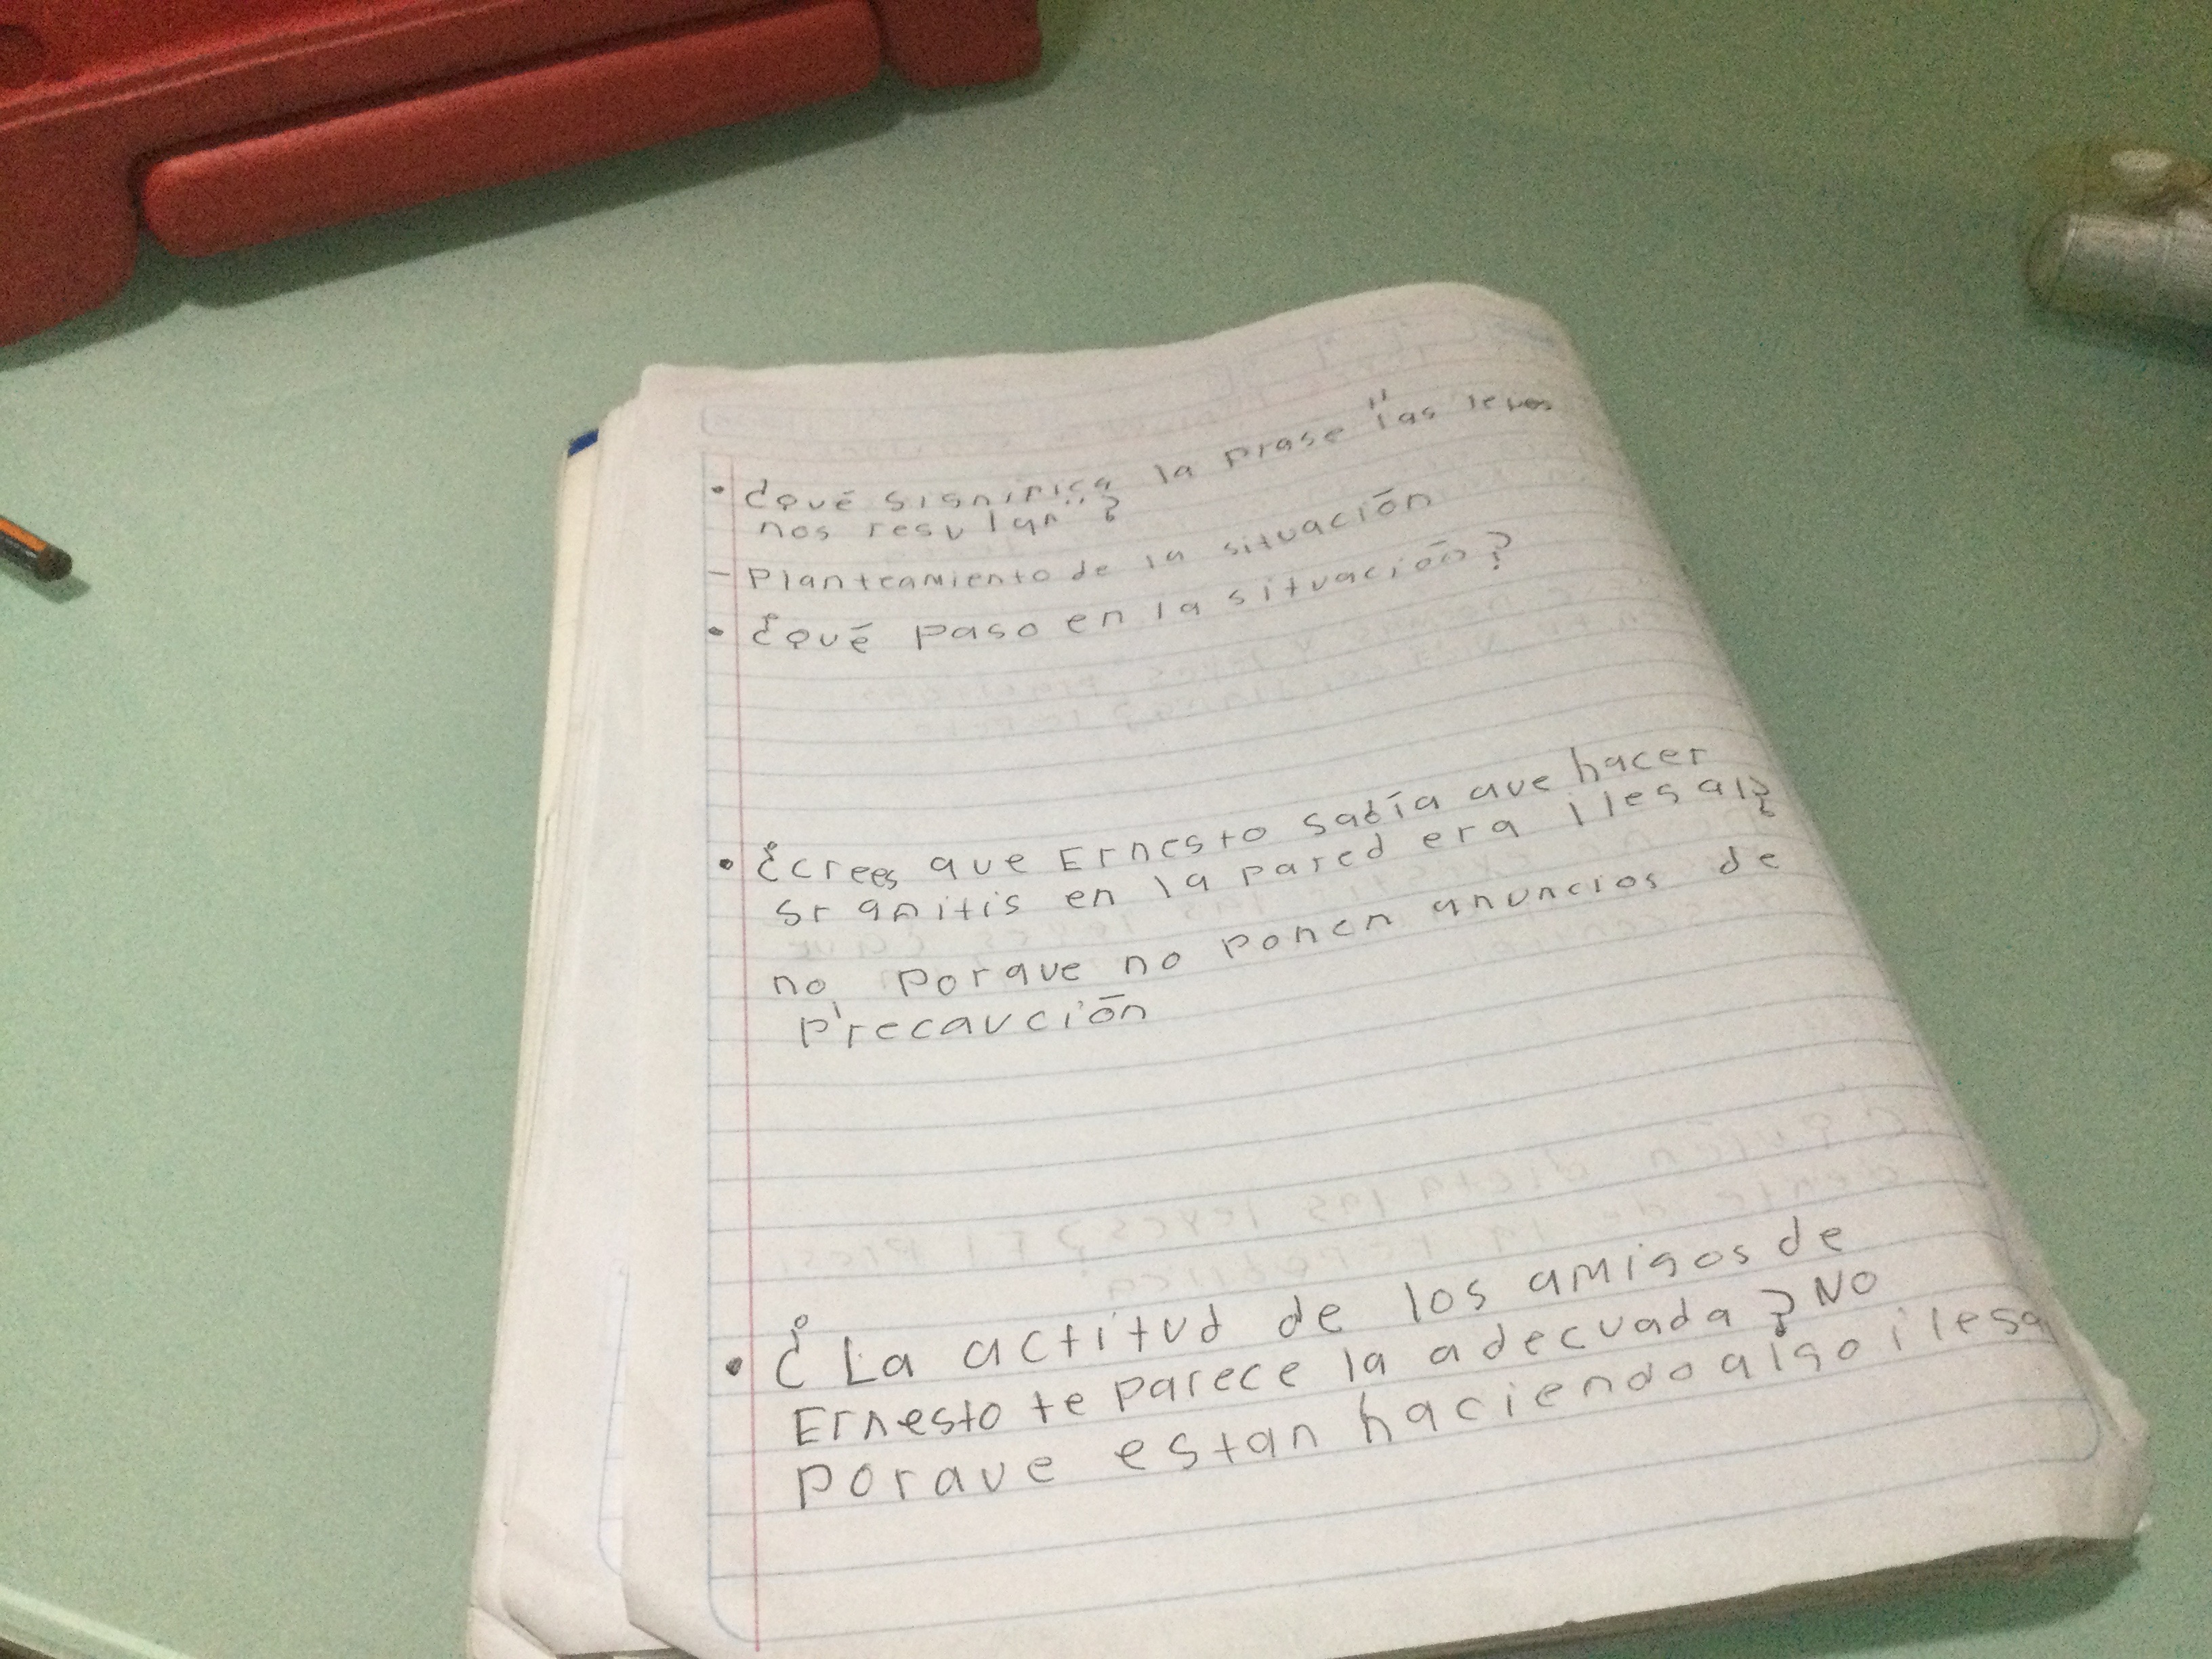 • ¿qué significa la frase "las leyes
nos regulan"?
- Planteamiento de la situación
• ¿qué paso en la situación?
• ¿crees que Ernesto sabía que hacer
grafitis en la pared era ilegal?
no, porque no ponen anuncios de
precaución
• ¿La actitud de los amigos de
Ernesto te parece la adecuada? NO
porque estan haciendo algo ilega